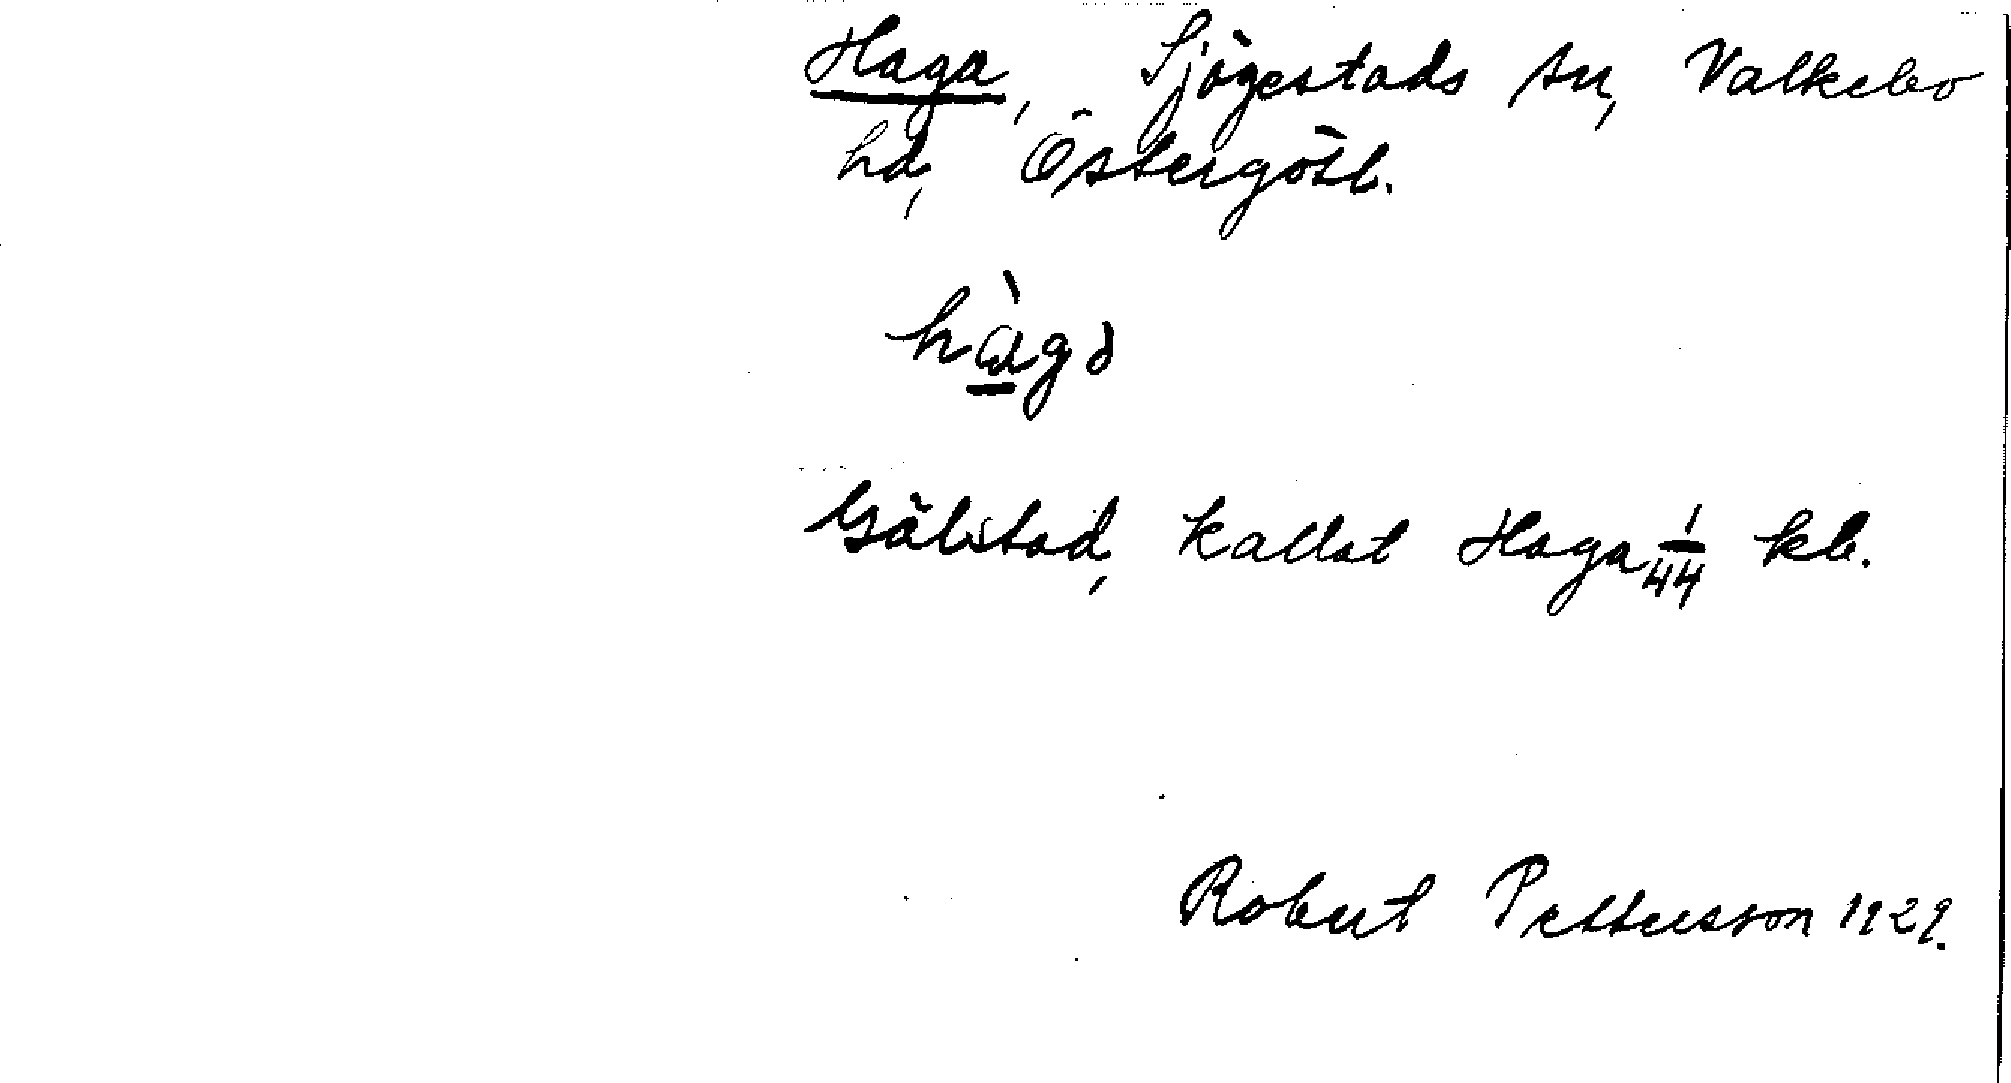 Haga, Sjögestads sn, Valkebo
hd, Östergötl.
hàgə
Gälstad, kallat Haga 1/44 kl.
Robert Pettersson 1929.